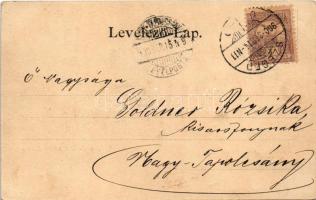 Levelező-Lap.
Ő Nagysága
Goldner Rózsika
kisasszonynak
Nagy-Tapolcsány